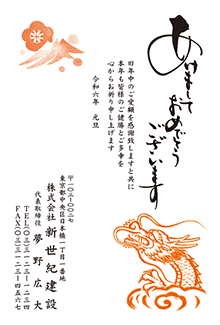 あけまして
おめでとう
ございます
旧年中のご愛顧を感謝致しますと共に
本年も皆様のご健勝とご多幸を
心からお祈り申し上げます
令和六年　元旦
〒一〇三-〇〇〇〇
東京都中央区日本橋一丁目一番地
株式会社 新世紀建設
代表取締役　夢野広大
TEL〇三(三一二三)一二三四
FAX〇三(三一二三)四五六七